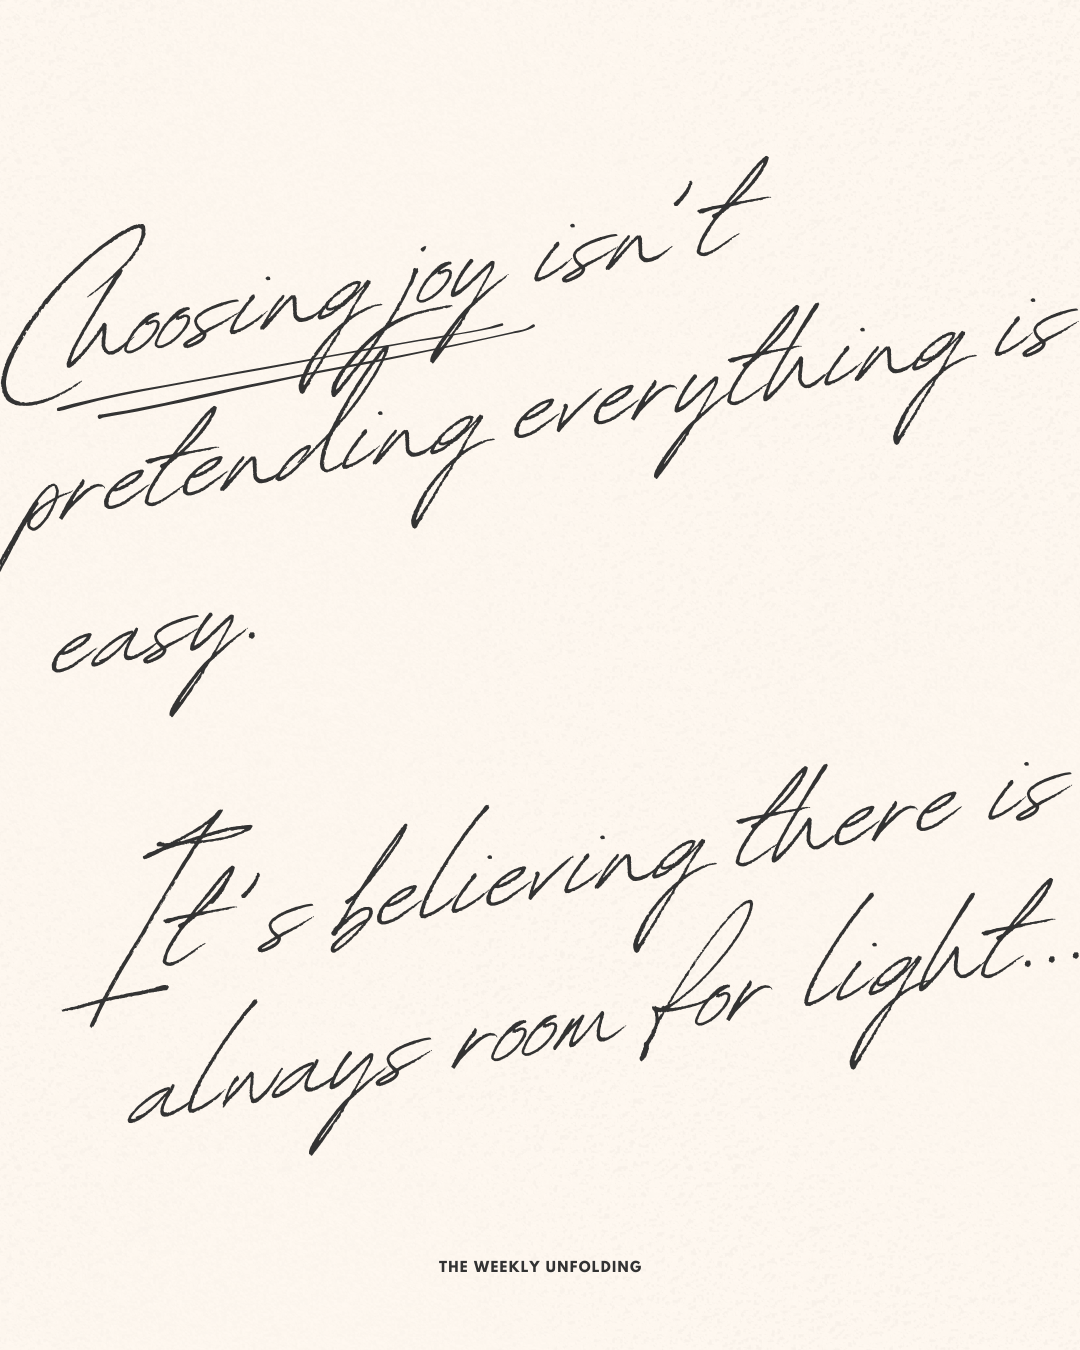 Choosing joy isn't
pretending everything is
easy.
It's believing there is
always room for light...
THE WEEKLY UNFOLDING